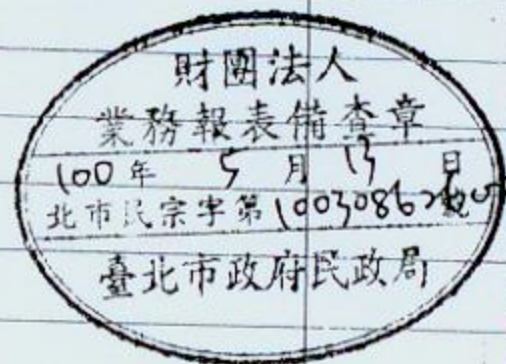 財團法人
業務報表備查章
100年5月13日
北市民宗字第10030862600號
臺北市政府民政局